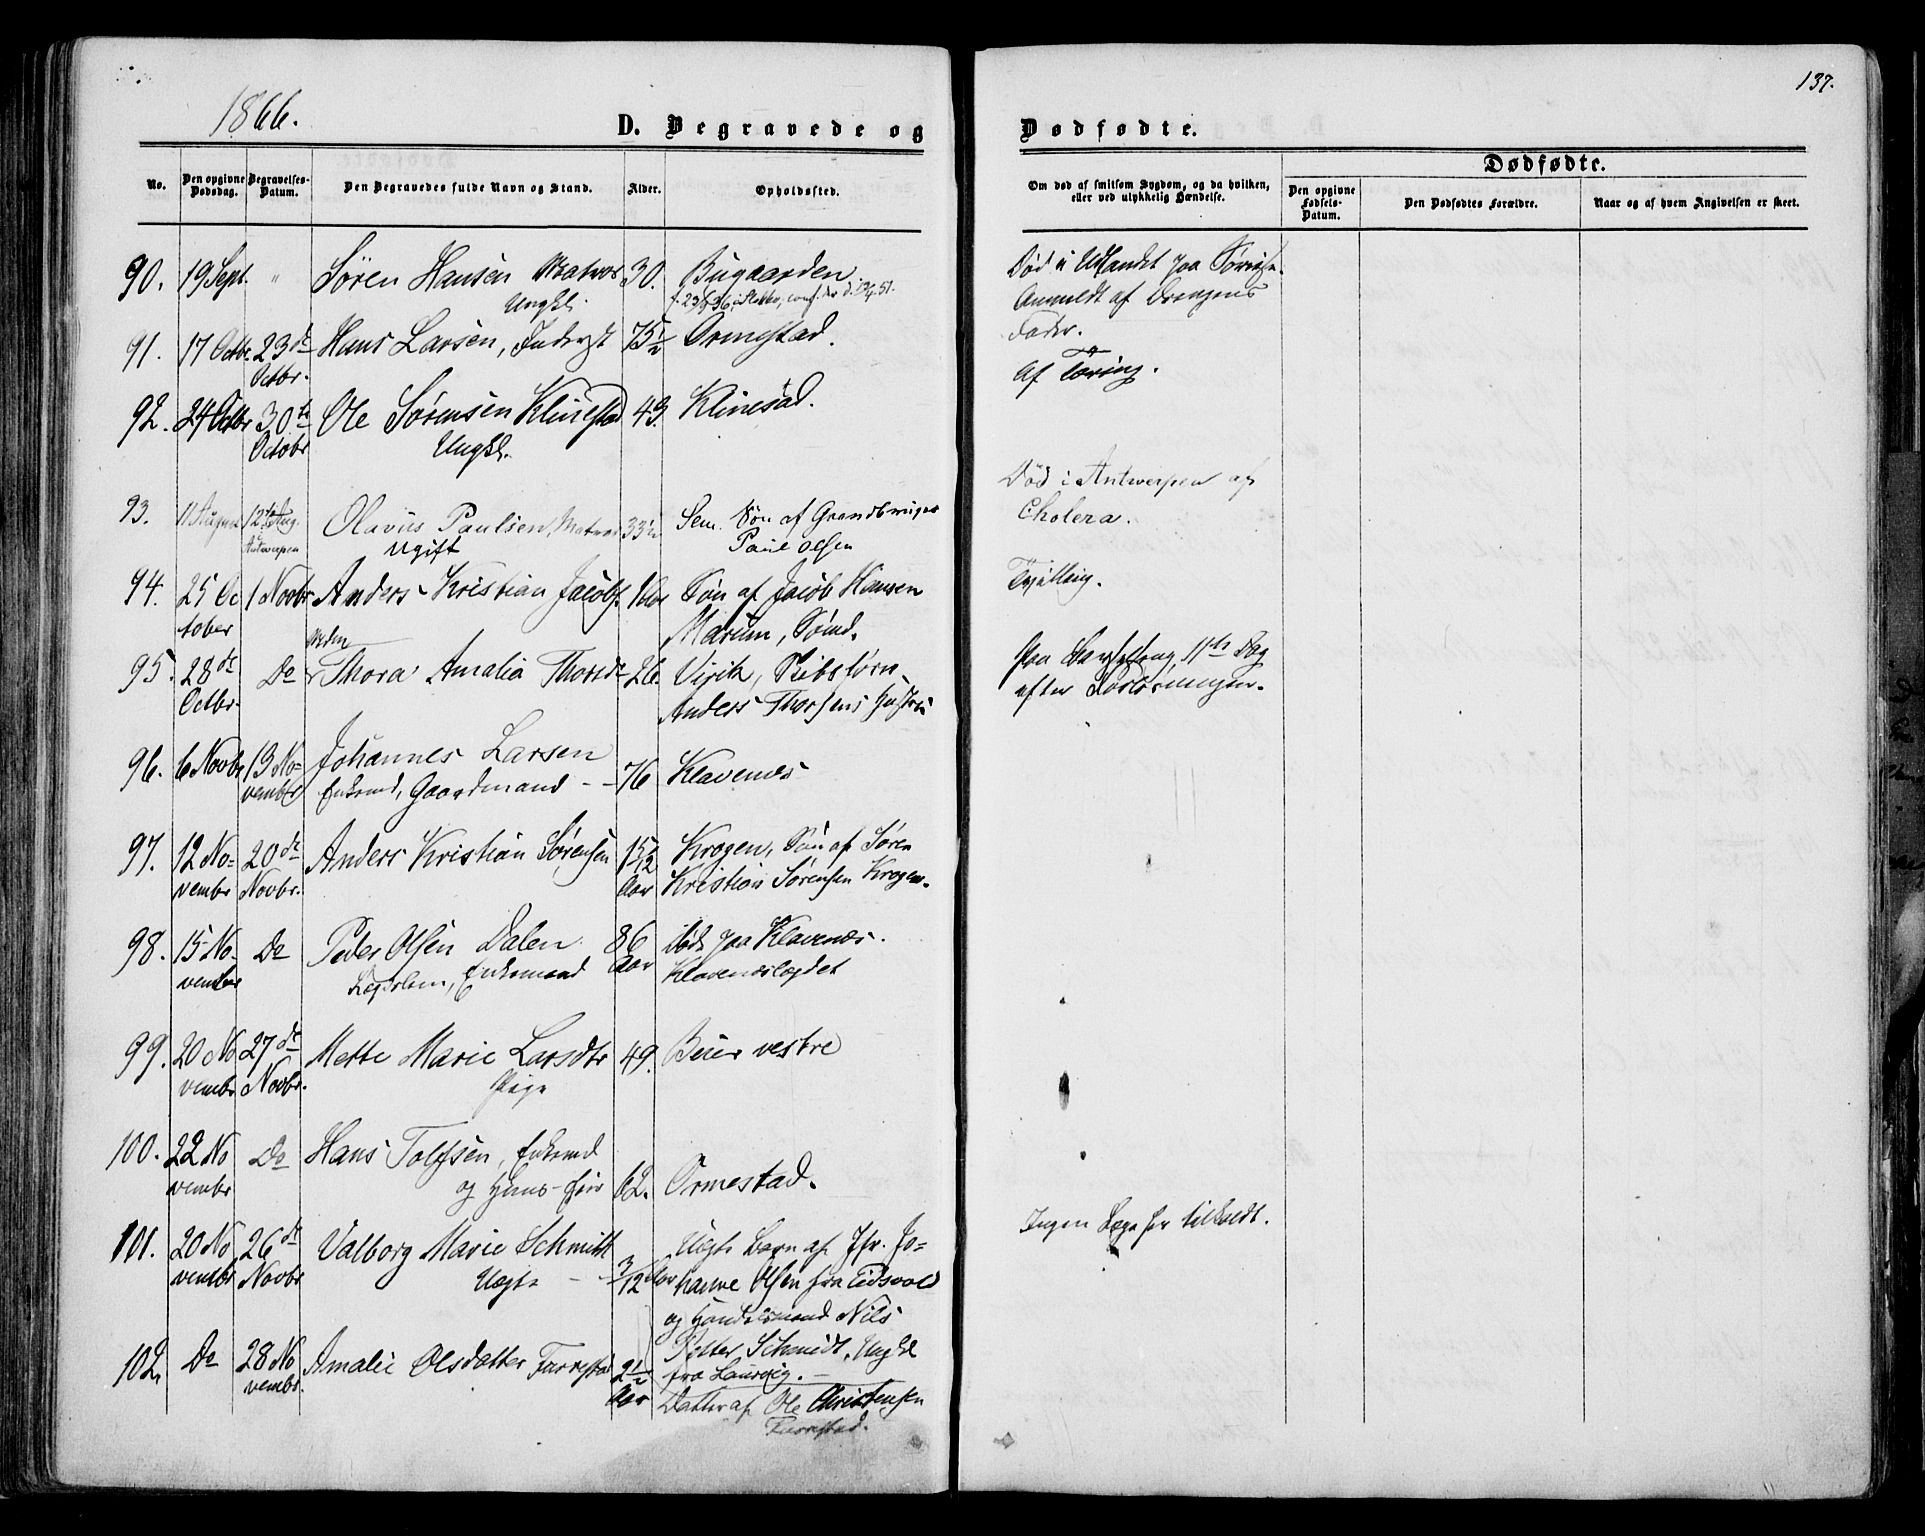 1866.
137.
D. Begravede og
Dødfødte.
No.
Den opgivne Dødsdag.
Begravelses-Datum.
Den Begravedes fulde Navn og Stand.
Alder.
Opholdssted.
Om død af smitsom Sygdom, og da hvilken,
eller ved ulykkelig Hændelse.
Dødfødte.
Den opgivne Fødsels-Datum.
Den Dødfødtes Forældre.
Naar og af hvem Angivelsen er skeet.
90. 19 Sept. " Søren Hansen Matros 30. Bugaarden
Ungkl.
Død i Udlandet paa
Anmeldt af Drengens
Fader.
91. 17 Octbr. 23de Hans Larsen, Inderst 75½ Ormestad.
Octbr.
Af Tæring.
92. 24 Octbr 30te Ole Sørensen Klinestad 43 Klinestad.
Octobr Ungkl.
93. 11 August 12te Aug. Olavus Paulsen, Matros 33½ Sem. Søn af Grandbruger
Antwerpen Ugift Paul Olsen
Død i Antwerpen af
Cholera.
94. 25 Oc 1 Novbr Anders Kristian Jacobs. Søn af Jacob Hansen
tober Marum, Sømd.
Tvilling.
95. 28de Do Thora Amalia Thorsd 26. Virik, Skibstørn.
Octbr. Anders Thorsens Hustru
Paa Barselseng, 11te Dag
efter Forløsningen.
96. 6 Novbr 13 No- Johannes Larsen 76 Klavenæs
vembr Enkemd, Gaardmand
97. 12 No- 20de Anders Kristian Sørensen Krogen, Søn af Søren
vembr Novbr. Aar Kristian Sørensen Krogen.
98. 15 No- Do Peder Olsen Dalen 86 døde paa Klavenæs.
vember Lægdslem, Enkemand Aar Klavenæslægdet
99. 20 No 27de Mette Marie Larsdtr 49. Beier vestre
vembr Novbr. Pige
100. 22 No Do Hans Tolfsen, Enkemd
vembr og Huus-Eier 62. Ormestad.
101. 20 No 26de Valborg Marie Schmith 3/12 Aar Uægte Barn af Jfr. Jo-
vembr Novbr Uægte hanne Olsen fra Eidsvold
og Handelsmand Nils
Petter Schmidt, Ungkl
fra Laurvig.
Ingen Læge har tilseedt.
102. Do 28 No Amalie Olsdatter Furrestad 2½
vembr. Aar Datter af Ole Christensen
Furrestad.